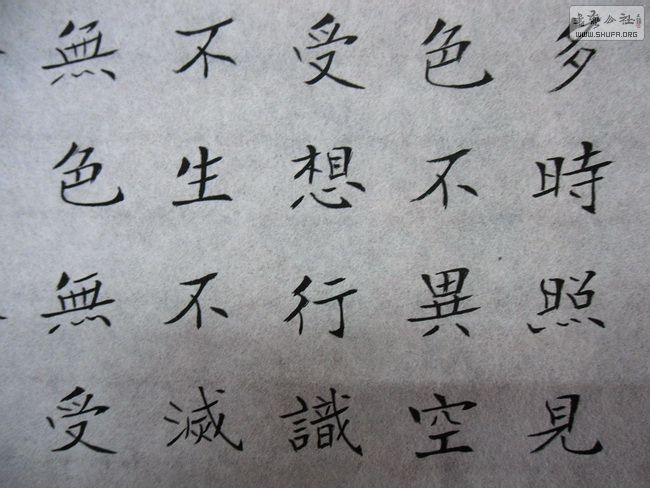 多時照見
色不異空
受想行識
不生不滅
無色無受
WWW.SHUFA.ORG